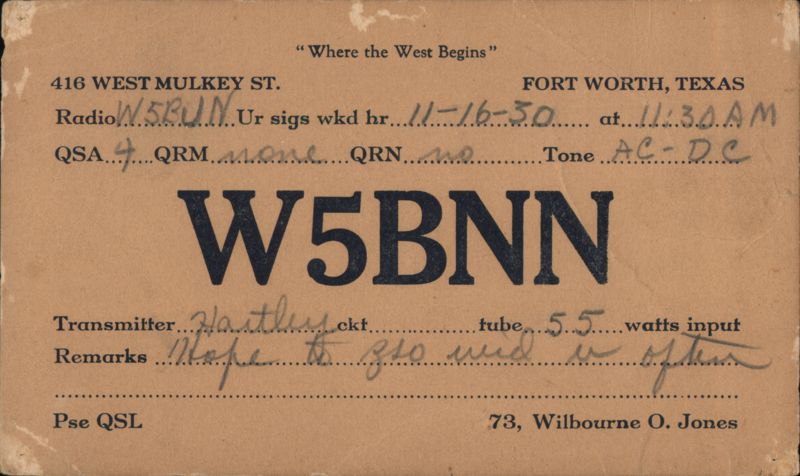 "Where the West Begins"
416 WEST MULKEY ST. FORT WORTH, TEXAS
Radio W5BUN Ur sigs wkd hr 11-16-30 at 11:30 AM
QSA 4 QRM none QRN no Tone AC-DC
W5BNN
Transmitter Hartley ckt tube, 55 watts input
Remarks Hope to qso wid u often
Pse QSL 73, Wilbourne O. Jones